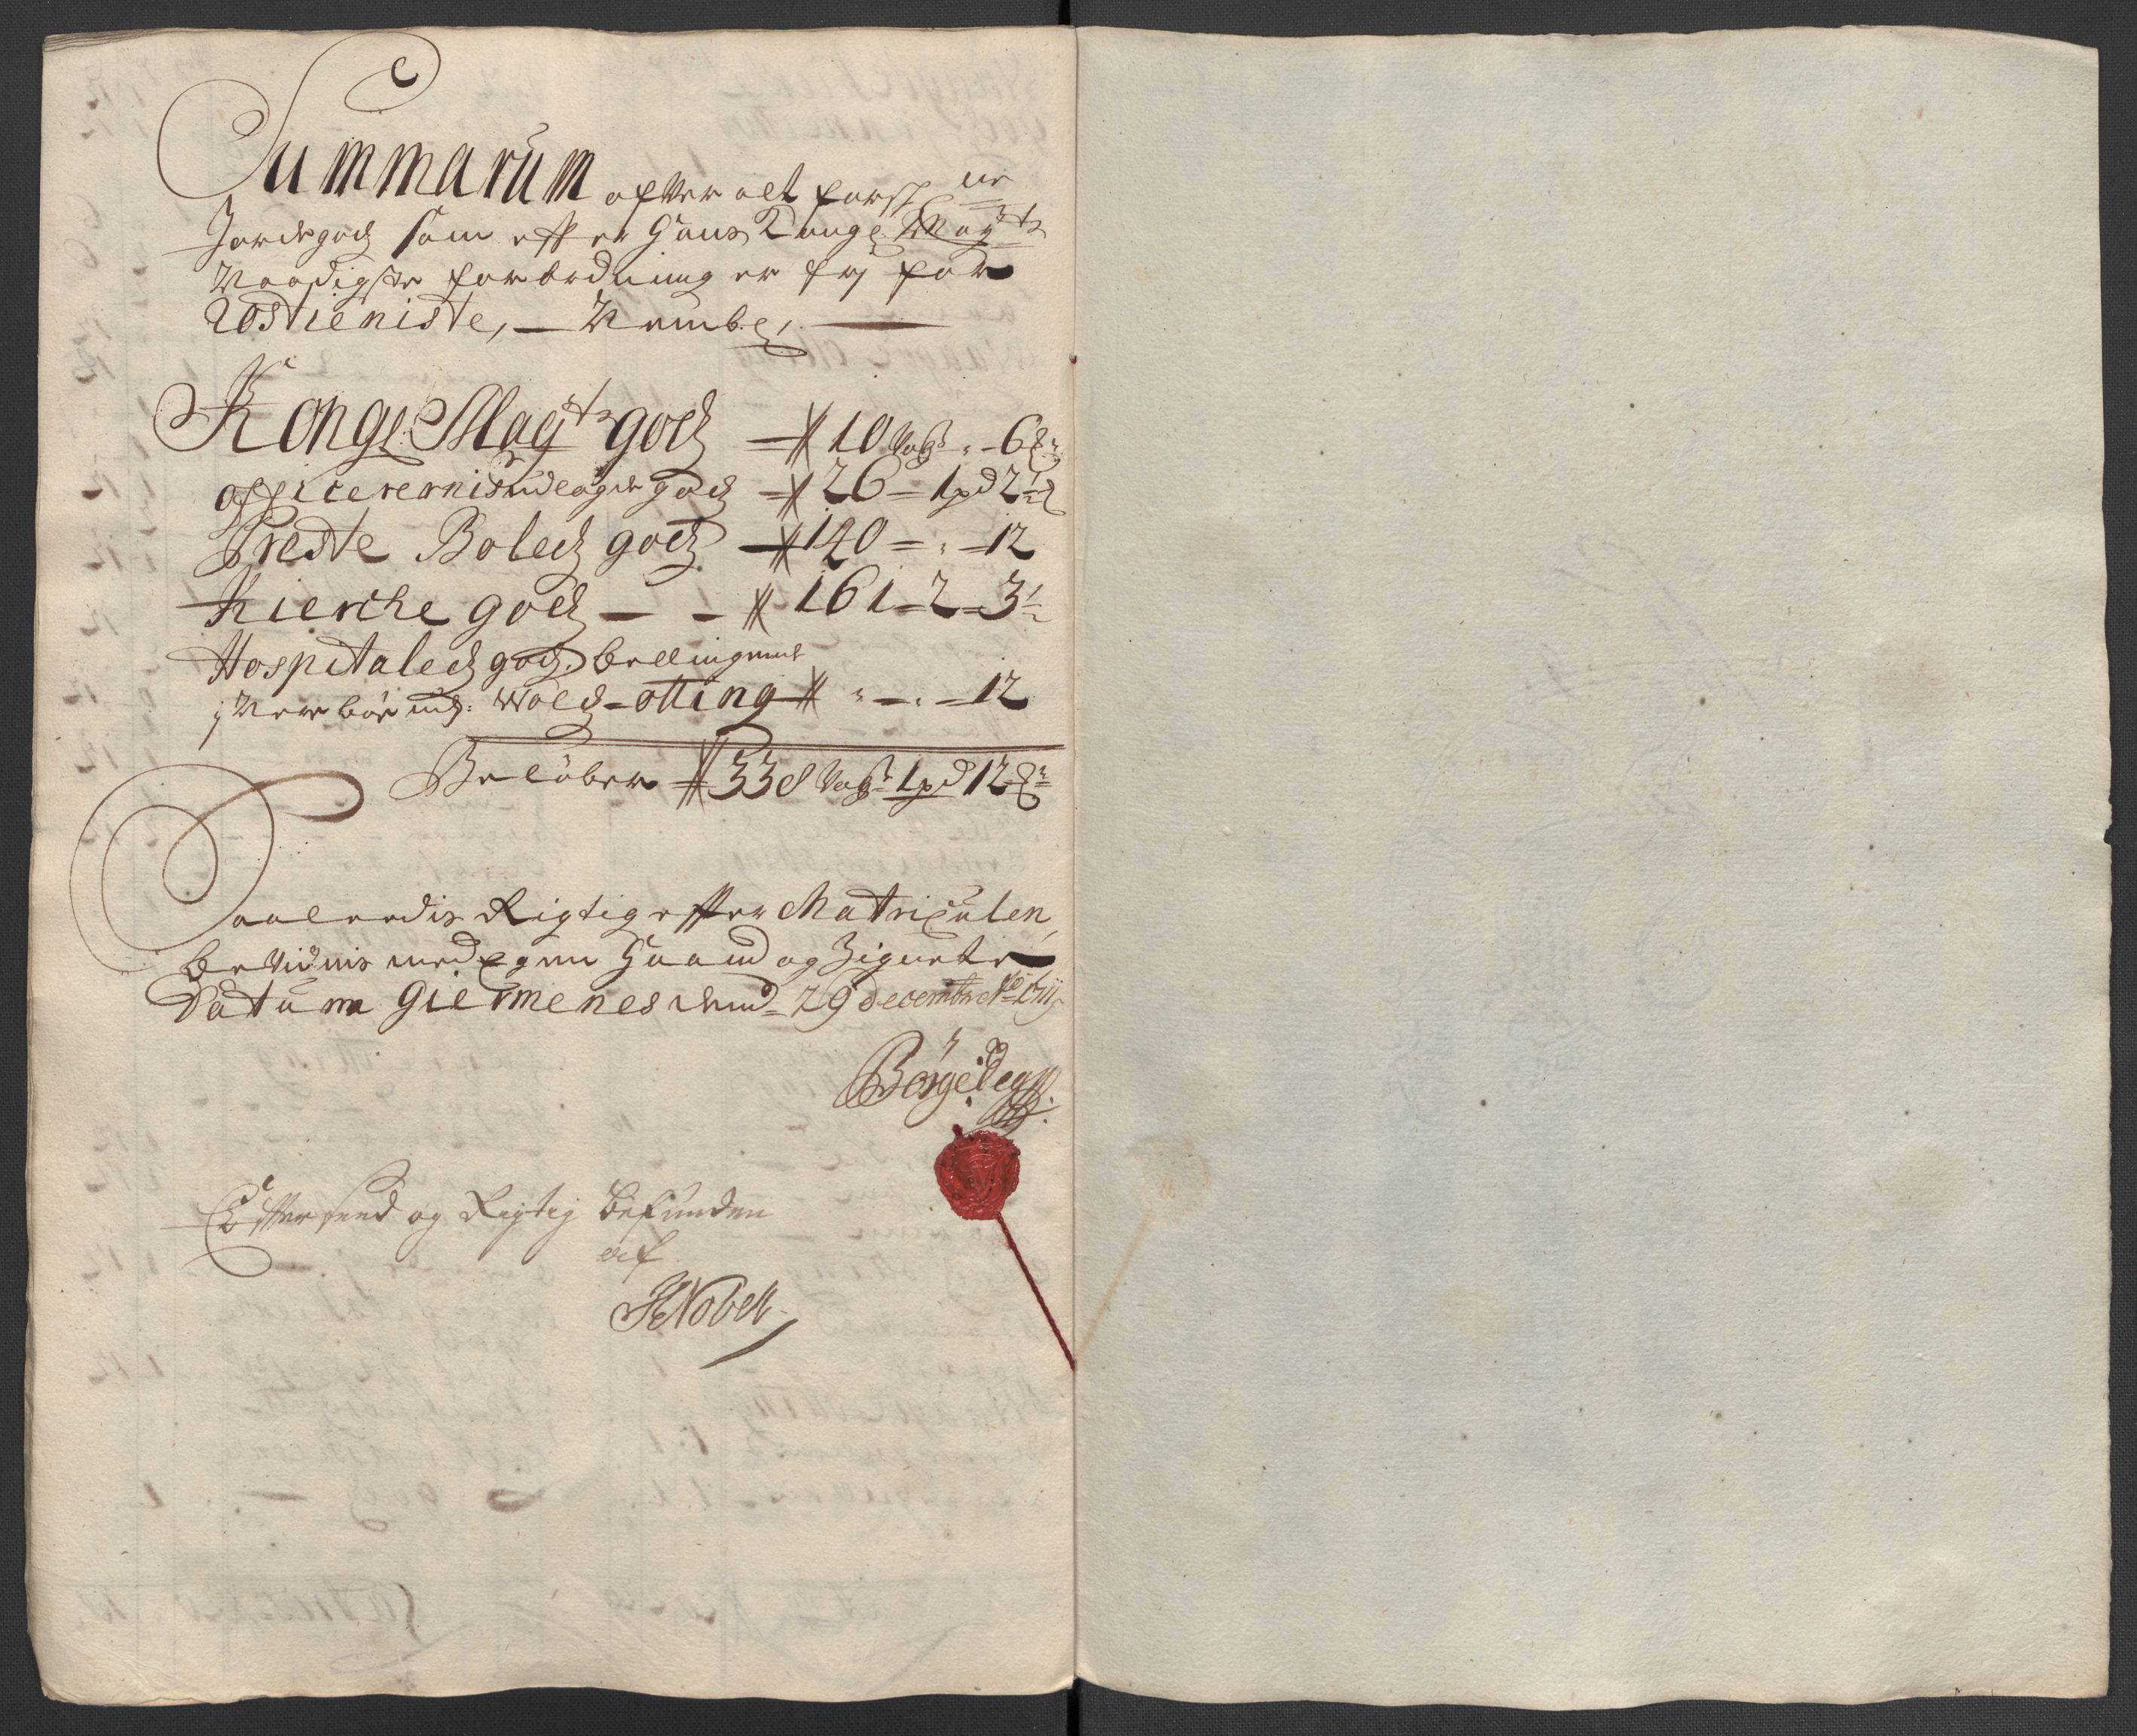 Summarum ofver alt forsk: ne
Jordegodz som effter Hans Kongl: Mayts
Naadigste forordning er frj for
Rostieniste, — Nembl: —
Kongl: Mayts godz — 10 Voger „ – 6 
officerernis udlagde godz – 26 – 1 pd 2½
Preste Boleds godz – 140 – „ – 12
Kierche godz — – 161 – 2 – 3½
Hospitaleds godz beliggende
j Nerbøe udj: Wolds – otting „ – „ – 12
Beløber 338 Voger 1 pd 12
Saaledis Rigtig effter Matriculen,
bevidnis med Egen Haand og Zignete
Datum Giermenes dend 29 decembr: Ao 1711
Børge
Effterseed og Rigtig befunden
af
HNobell